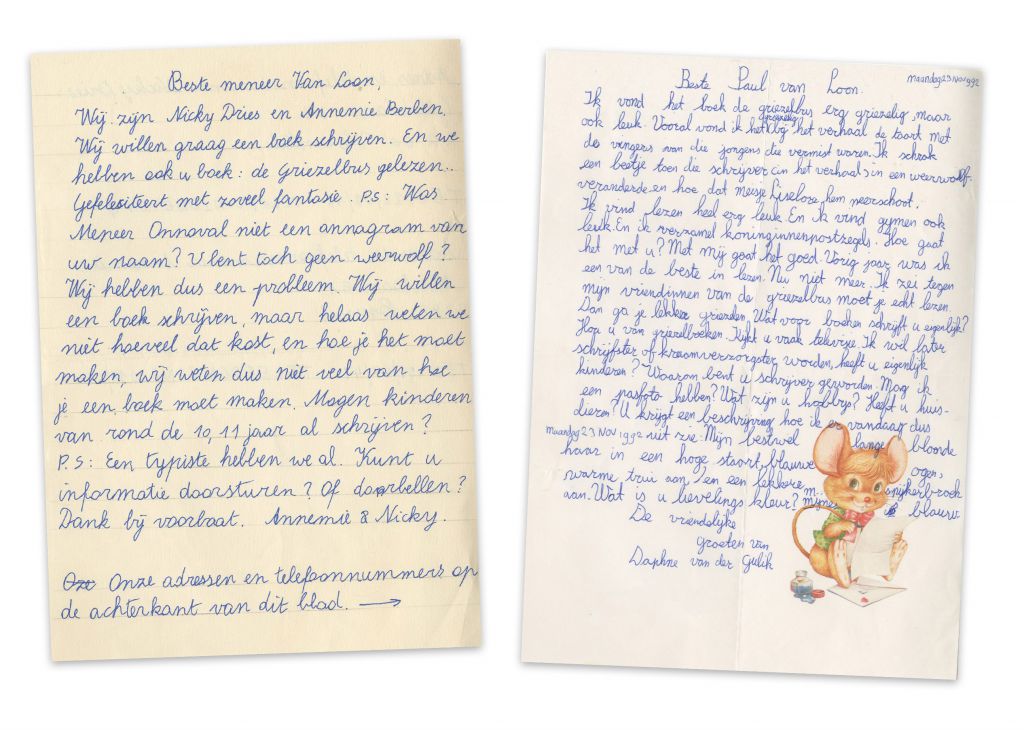 Beste meneer Van Loon,
Wij zijn Nicky Dries en Annemie Berben.
Wij willen graag een boek schrijven. En we
hebben ook u boek: de Griezelbus gelezen..
Gefeleciteert met zoveel fantasie. P.S: Was
Meneer Onnoval niet een annagram van
uw naam? U bent toch geen weerwolf?
Wij hebben dus een probleem. Wij willen
een boek schrijven, maar helaas weten we
niet hoeveel dat kost, en hoe je het moet
maken, wij weten dus niet veel van hoe
je een boek moet maken. Mogen kinderen
van rond de 10, 11 jaar al schrijven?
P.S: Een typiste hebben we al. Kunt u
informatie doorsturen? Of doorbellen?
Dank bij voorbaat. Annemie & Nicky.
Onze adressen en telefoonnummers op
de achterkant van dit blad. →
maandag 23 Nov 1992
Beste Paul van Loon.
Ik vond het boek de griezelbus erg griezelig, maar
ook leuk. Vooral vond ik het griezelig bij het verhaal de taart met
de vingers van die jongens die vermist waren. Ik schrok
een beetje toen die schrijver (in het verhaal) in een weerwolf
veranderde, en hoe dat meisje Liselore hem neerschoot.
Ik vind lezen heel erg leuk. En ik vind gymen ook
leuk. En ik verzamel koninginnenpostzegels. Hoe gaat
het met u? Met mij gaat het goed. Vorig jaar was ik
een van de beste in lezen. Nu niet meer. Ik zei tegen
mijn vriendinnen van de griezelbus moet je echt lezen
Dan ga je lekker griezelen. Wat voor boeken schrijft u eigenlijk?
Hou u van griezelboeken. Kijkt u vaak televisje. Ik wil later
schrijfster of kraamverzorgster worden, heeft u eigenlijk
kinderen? Waarom bent u schrijver geworden. Mag ik
een pasfoto hebben? Wat zijn u hobbys? Heeft u huis-
dieren? U krijgt een beschrijving hoe ik er vandaag dus
maandag 23 NOV 1992 uit zie. Mijn bestwel lange blonde
haar in een hoge staart, blauwe ogen,
warme trui aan, en een lekkere spijkerbroek
aan. Wat is u lievelings kleur? mijne is blauw
De vriendelijke
groeten van
Daphne van der Gulik